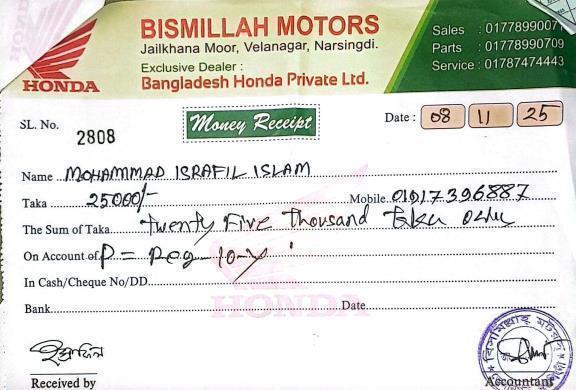 BISMILLAH MOTORS
Jailkhana Moor, Velanagar, Narsingdi.
Exclusive Dealer :
Bangladesh Honda Private Ltd.
HONDA
Sales : 01778990071
Parts : 01778990709
Service : 01787474443
SL. No. 2808
Money Receipt
Date : 08 11 25
Name MOHAMMAD ISRAFIL ISLAM
Taka 25000/- Mobile 01917396887
The Sum of Taka twenty Five thousand taka only
On Account of P = Reg - 10-y
In Cash/Cheque No/DD
Bank Date
HONDA
ইস্রাফিল
Received by
Accountant